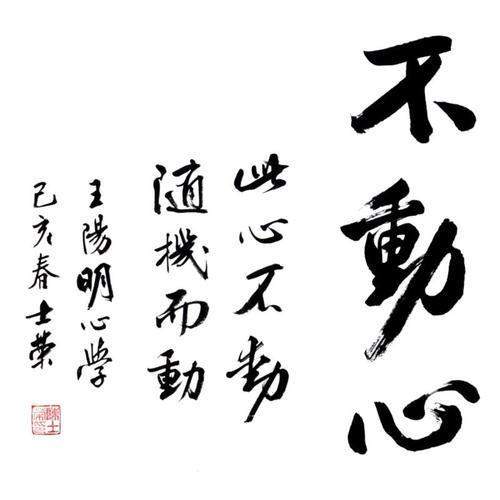 不動心
此心不動
随機而動
王陽明心学
己亥春士榮